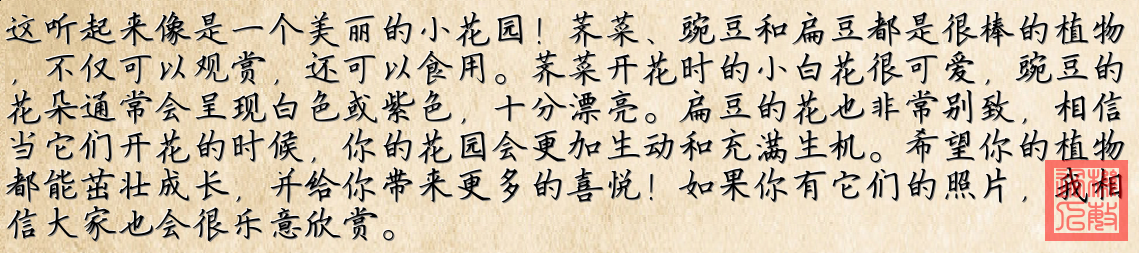 这听起来像是一个美丽的小花园！荠菜、豌豆和扁豆都是很棒的植物
，不仅可以观赏，还可以食用。荠菜开花时的小白花很可爱，豌豆的
花朵通常会呈现白色或紫色，十分漂亮。扁豆的花也非常别致，相信
当它们开花的时候，你的花园会更加生动和充满生机。希望你的植物
都能茁壮成长，并给你带来更多的喜悦！如果你有它们的照片，我相
信大家也会很乐意欣赏。